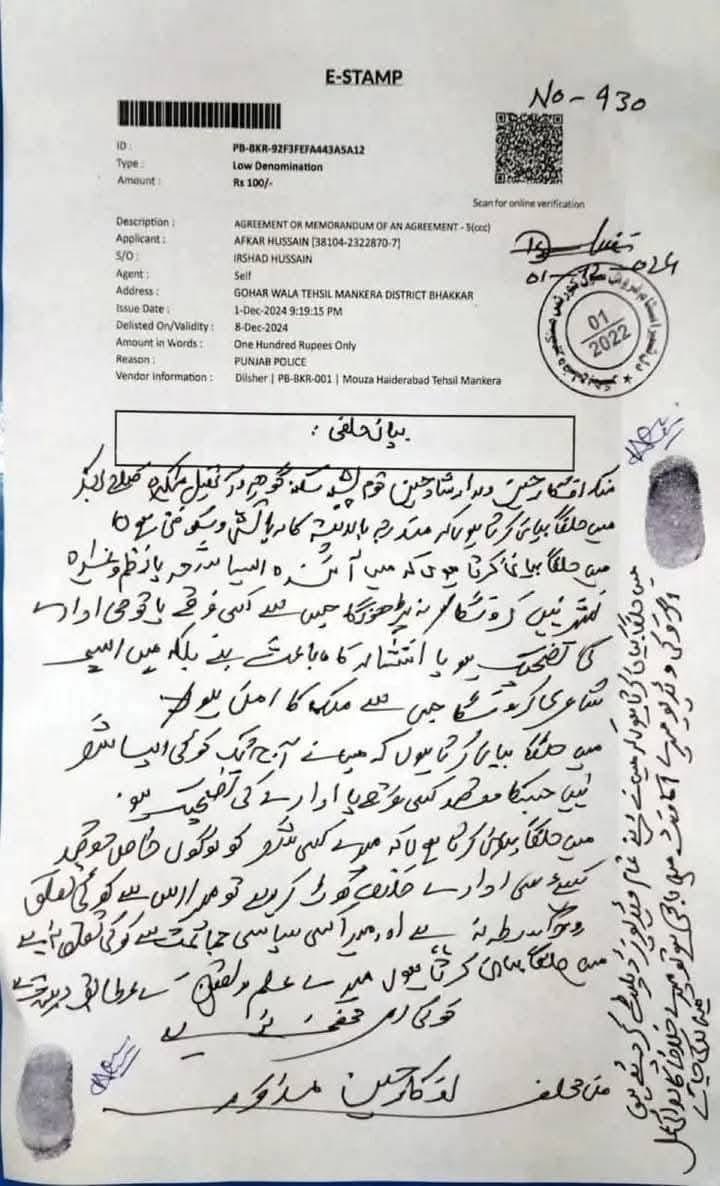 E-STAMP
No - 430
ID : PB-BKR-92F3FEFA443A5A12
Type : Low Denomination
Amount : Rs 100/-
Scan for online verification
Description : AGREEMENT OR MEMORANDUM OF AN AGREEMENT - 5(ccc)
Applicant : AFKAR HUSSAIN [38104-2322870-7]
S/O : IRSHAD HUSSAIN
Agent : Self
Address : GOHAR WALA TEHSIL MANKERA DISTRICT BHAKKAR
Issue Date : 1-Dec-2024 9:19:15 PM
Delisted On/Validity : 8-Dec-2024
Amount in Words : One Hundred Rupees Only
Reason : PUNJAB POLICE
Vendor Information : Dilsher | PB-BKR-001 | Mouza Haiderabad Tehsil Mankera
01-12-024
01
2022
بیان حلفی :
منکہ افکار حسین ولد ارشاد حسین قوم سکنہ گوہر والا تحصیل منکیرہ ضلع بھکر
میں حلفاً بیان کرتا ہوں کہ مندرجہ بالا پتہ کا رہائشی و سکونتی ہوں
میں حلفاً بیان کرتا ہوں کہ میں آئندہ ایسا شعر یا نظم وغیرہ
نہیں کروں گا نہ پڑھوں گا جس سے کسی فرقے یا قومی ادارے
کی تضحیک ہو یا انتشار کا باعث بنے بلکہ میں ایسی
شاعری کروں گا جس سے ملک کا امن ہو
میں حلفاً بیان کرتا ہوں کہ میں نے آج تک کوئی ایسا شعر
نہیں جسکا مقصد کسی فرقے یا ادارے کی تضحیک ہو
میں حلفاً بیان کرتا ہوں کہ میرے کسی شعر کو لوگوں خاص
کسی ادارے خلاف کرے تو میرا اس سے کوئی تعلق
واسطہ نہ ہے اور میرا کسی سیاسی جماعت سے کوئی تعلق نہ ہے
میں حلفاً بیان کرتا ہوں میرے علم و یقین کے مطابق درست ہے
کوئی امر مخفی نہ ہے
من محلف افکار حسین مذکور
میں حلفاً بیان کرتا ہوں کہ میں نے اپنے تمام ویڈیوز ڈیلیٹ کر دیئے ہیں
اگر کوئی ویڈیو میرے اکاؤنٹ میں پائی گئی تو میرے خلاف کاروائی عمل
میں لائی جائے